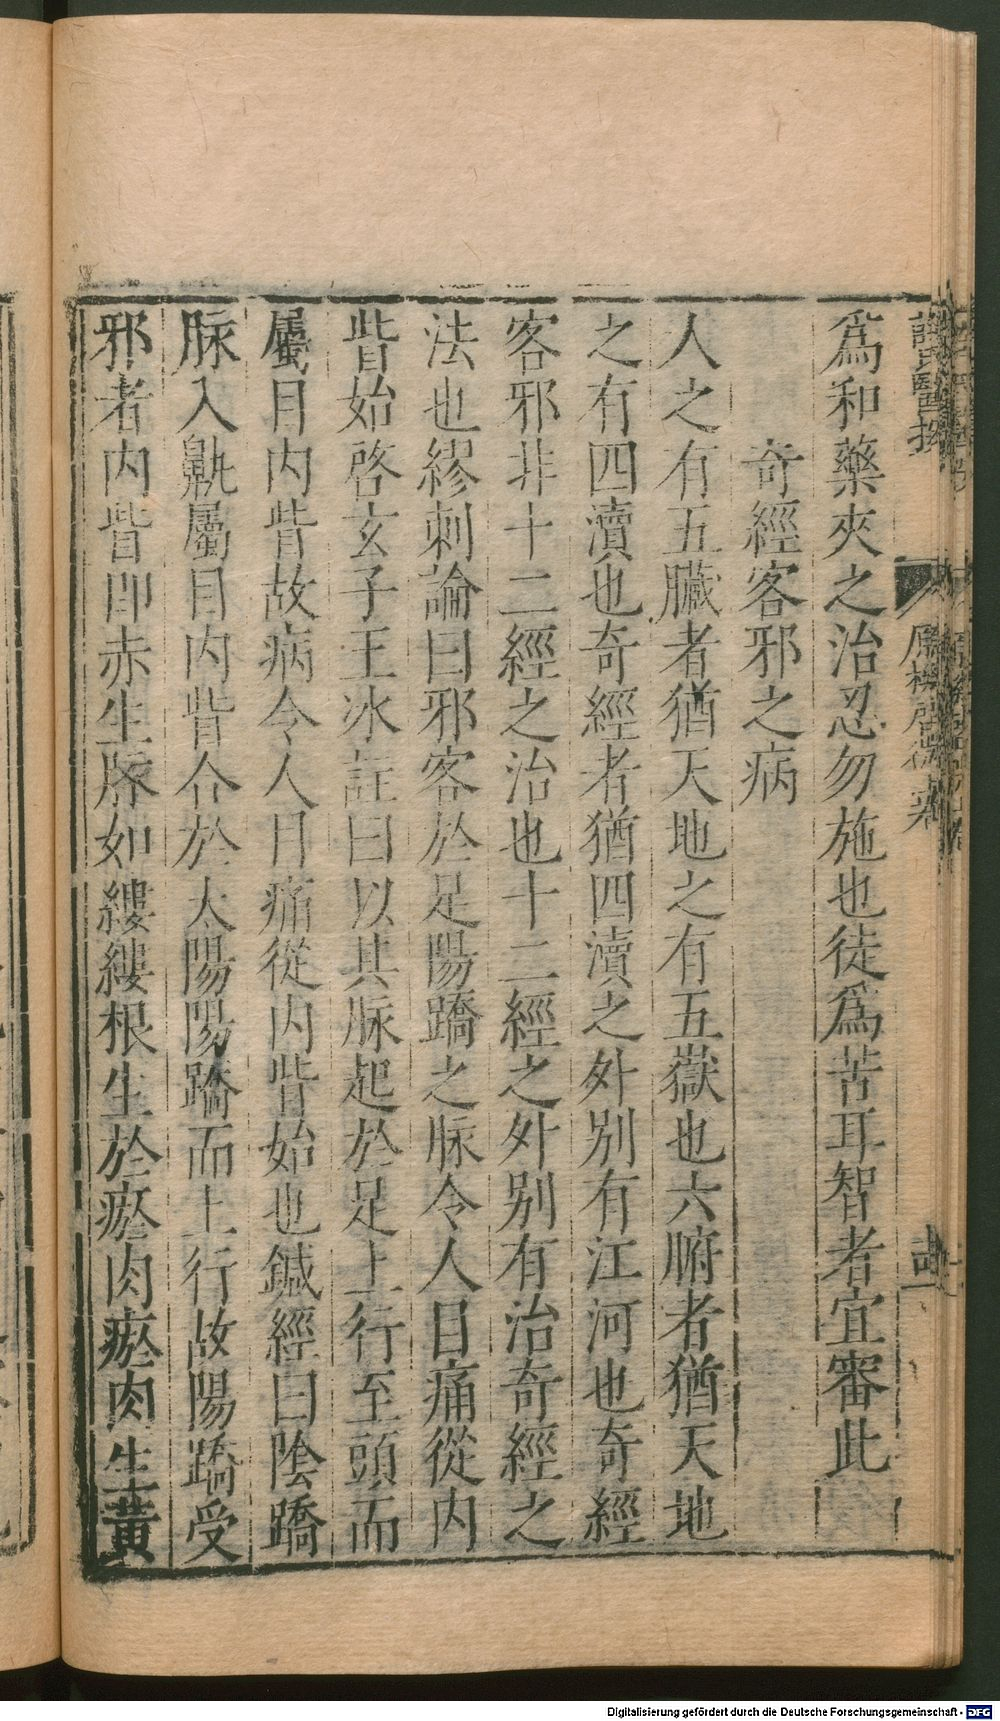 爲和藥夾之治忍勿施也徒爲苦耳智者宜審此
奇經客邪之病
人之有五臟者猶天地之有五嶽也六腑者猶天地
之有四瀆也奇經者猶四瀆之外别有江河也奇經
客邪非十二經之治也十二經之外别有治奇經之
法也繆刺論曰邪客於足陽蹻之脉令人目痛從内
眥始啓玄子王冰註曰以其脉起於足上行至頭而
屬目内眥故病令人目痛從内眥始也鍼經曰陰蹻
脉入鼽屬目内眥合於太陽陽蹻而上行故陽蹻受
邪者内眥即赤生脉如縷縷根生於瘀肉瘀肉生黃
Digitalisierung gefördert durch die Deutsche Forschungsgemeinschaft - DFG